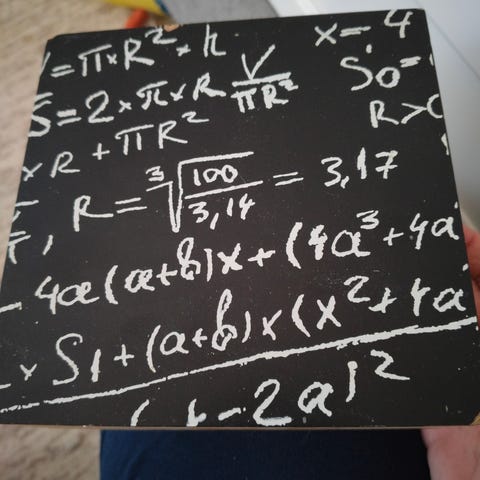 V=π×R²×h   x=-4
S=2×π×R V/πR²   So=
×R+πR²   R>0
R=³√(100/3,14)=3,17
4a(a+b)x+(4a³+4a
×S₁+(a+b)×(x²+4a
-2a)²